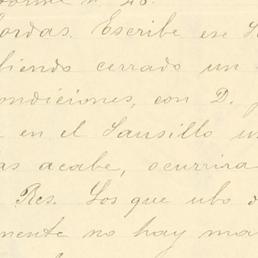 nº 48.
ordas. Escribe ese S
biendo cerrado un
ondiciones, con D.
en el Sausillo un
as acabe, ocurrira
Res. Los que ubo d
mente no hay ma